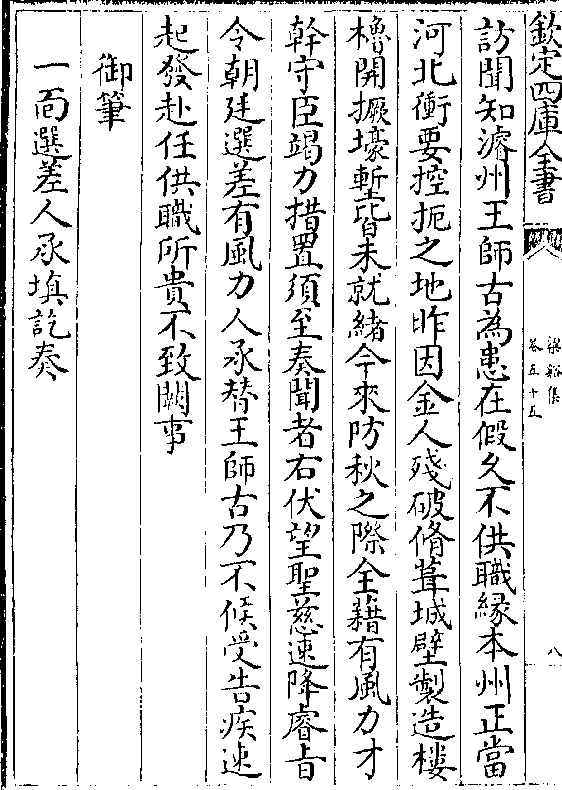 欽定四庫全書
梁谿集
卷五十五
八
訪聞知濬州王師古為患在假久不供職緣本州正當
河北衝要控扼之地昨因金人殘破脩葺城壁製造樓
櫓開撅壕塹皆未就緒今來防秋之際全藉有風力才
幹守臣竭力措置須至奏聞者右伏望聖慈速降睿旨
令朝廷選差有風力人承替王師古乃不候受告疾速
起發赴任供職所貴不致闕事
御筆
一面選差人承填訖奏